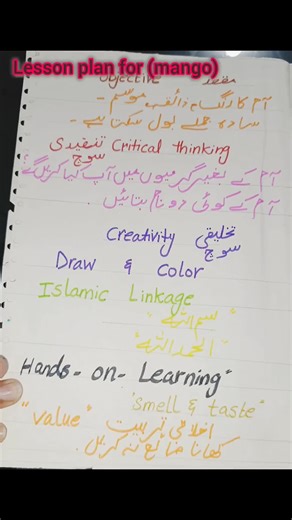 Lesson plan for (mango)
Objective مقصد
آم کا رنگ، ذائقہ، موسم -
سادہ جملے بول سکنا ہے -
تنقیدی Critical thinking
سوچ
آم کے بغیر گرمیوں میں آپ کیا کریں گے؟
آم کے کوئی دو نام بتائیں
Creativity تخلیقی
سوچ
Draw & Color
Islamic Linkage
"بسم اللہ"
"الحمد اللہ"
Hands-on-Learning"
"smell & taste"
"value" اخلاقی تربیت
کھانا ضائع نہ کریں.